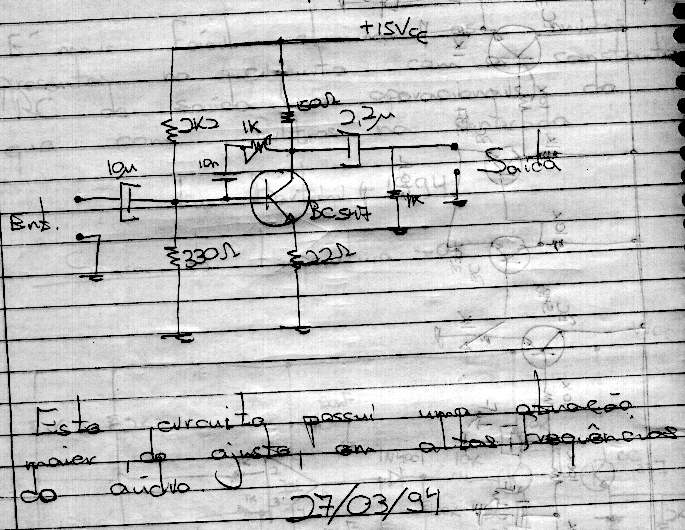 +15Vcc
2K2
1K
150Ω
2,2µ
10n
10µ
Saída
Ent.
BC547
1K
330Ω
22Ω
Este circuito possui uma atuação
maior do ajuste, em altas frequências
do áudio.
27/03/94